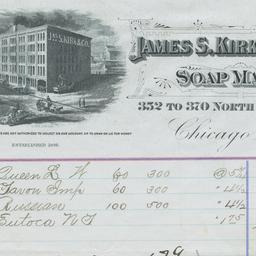 JAS. S. KIRK & CO.
JAMES S. KIRK
SOAP MA
352 TO 370 NORTH
Chicago
ARE NOT AUTHORIZED TO COLLECT ON OUR ACCOUNT, OR TO DRAW ON US FOR MONEY
ESTABLISHED 1839.
Queen L W 60 300 @ 5
Savon Imp 60 300 " 4 1/2
Russian 100 500 " 4 1/2
" 1.75